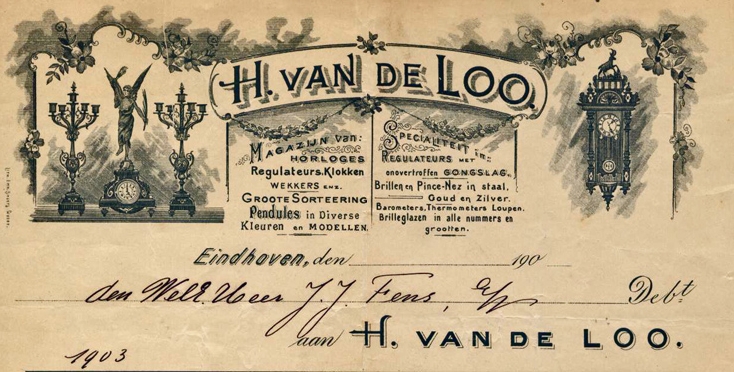 H. VAN DE LOO.
MAGAZIJN van:
HORLOGES
Regulateurs. Klokken
WEKKERS ENZ.
GROOTE SORTEERING
Pendules in Diverse
Kleuren en MODELLEN.
SPECIALITEIT in:
REGULATEURS MET
onovertroffen GONGSLAG.
Brillen en Pince-Nez in staal,
Goud en Zilver.
Barometers, Thermometers Loupen.
Brilleglazen in alle nummers en
grootten.
Eindhoven, den 190
den WelE. Heer J. J. Fens, Debt
aan H. VAN DE LOO.
1903